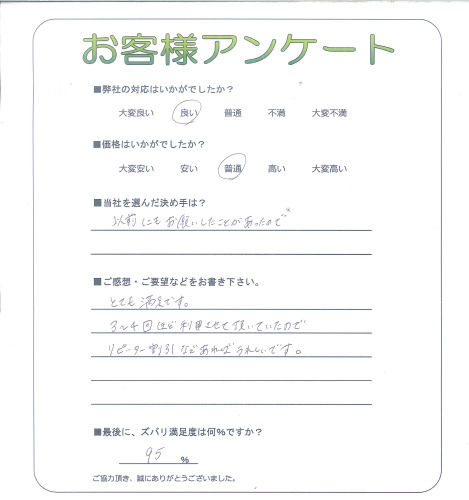 お客様アンケート
■弊社の対応はいかがでしたか？
大変良い 良い 普通 不満 大変不満
■価格はいかがでしたか？
大変安い 安い 普通 高い 大変高い
■当社を選んだ決め手は？
以前にもお願いしたことがあったので
■ご感想・ご要望などをお書き下さい。
とても満足です。
3〜4回ほど利用させて頂いていたので
リピーター割引などあればうれしいです。
■最後に、ズバリ満足度は何%ですか？
95 %
ご協力頂き、誠にありがとうございました。